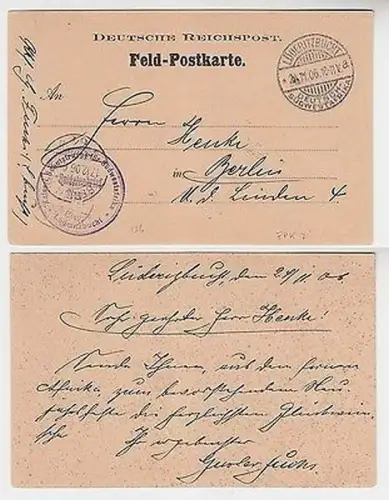 DEUTSCHE REICHSPOST.
Feld-Postkarte.
LÜDERITZBUCHT
24.11.06
DEUTSCH-
SÜDWESTAFRIKA
An
Herrn
Henke
in Berlin
U. d. Linden 4
Lüderitzbucht, den 24/11 06
Sehr geehrter Herr Henke!
Sende Ihnen, aus dem fernen
Afrika zum bevorstehenden Neu-
jahrsfeste die herzlichsten Glückwün-
sche
Ihr ergebenster
Fuchs